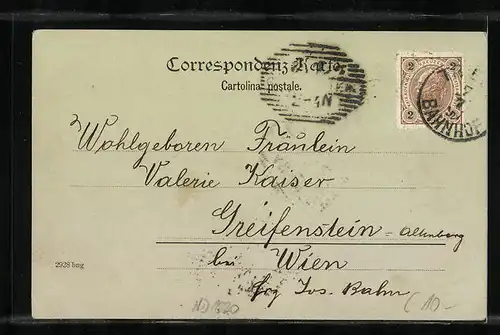 Correspondenz-Karte.
Cartolina postale.
2 2
2 2
BAHNHOF
2-4N
Wohlgeboren Fräulein
Valerie Kaiser
Greifenstein - Altenberg
bei Wien
Frz Jos. Bahn
2928 berg